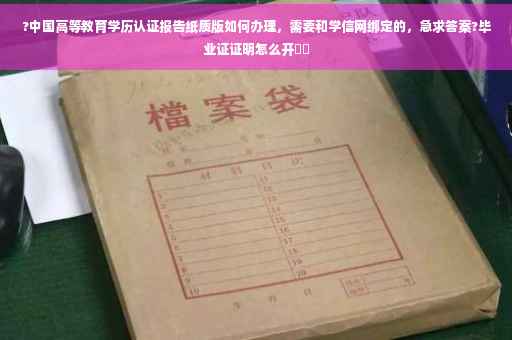 ?中国高等教育学历认证报告纸质版如何办理，需要和学信网绑定的，急求答案?毕
业证证明怎么开
檔案袋
材料目次
1 11
2 12
3 13
4 14
5 15
6 16
7 17
8 18
9 19
10 20
年 月 日